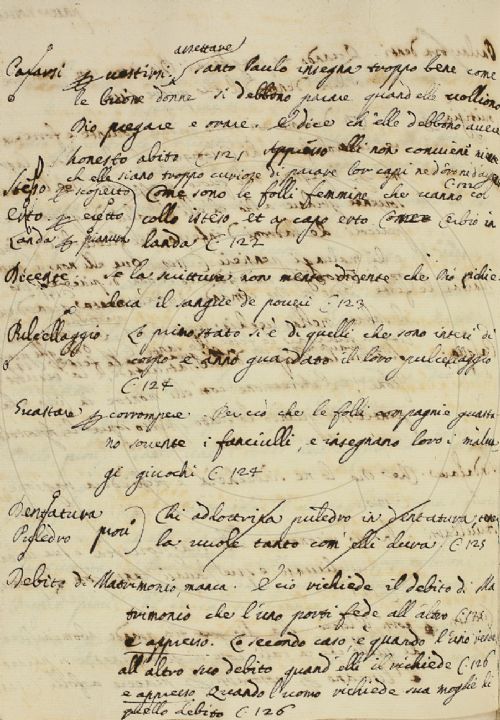 assettare
Pararsi per vestirsi. Santo Paulo insegna troppo bene come
le buone donne si debbono parare quand'elle vogliono
Dio pregare e orare. E dice ch'elle debbono avere
honesto abito C 121 appresso elli non conviene
ch'elle siano troppo curiose di parare lor capi ne d'oro
C 122
Steso per scoperto Come sono le folli femmine che vanno co
Erto. per eretto collo isteso, et a capo erto come Cerbio in
Landa per pianura landa C 122
Dicente. Se la scrittura non mente dicente che Dio richie
derà il sangue de poveri C 123
Pulcellaggio. Lo primo stato si è di quelli che sono interi di
corpo e anno guardato il loro pulcellaggio
C 124
Guastare per corrompere. Perciò che le folli compagnie guasta
no sovente i fanciulli, e insegnano loro i malva
gi giuochi C 124
Dentatura
Puledro prov. Chi addottrina puledro in dentatura, tene
la vuole tanto com'elli dura. C 125
Debito di Matrimonio, manca. E ciò richiede il debito di Ma
trimonio che l'uno porti fede all'altro C 125
e appresso. Lo secondo caso, e quando l'uno rende
all'altro suo debito quand'elli il richiede C 126
e appresso Quando l'uomo richiede sua moglie di
quello debito C 126